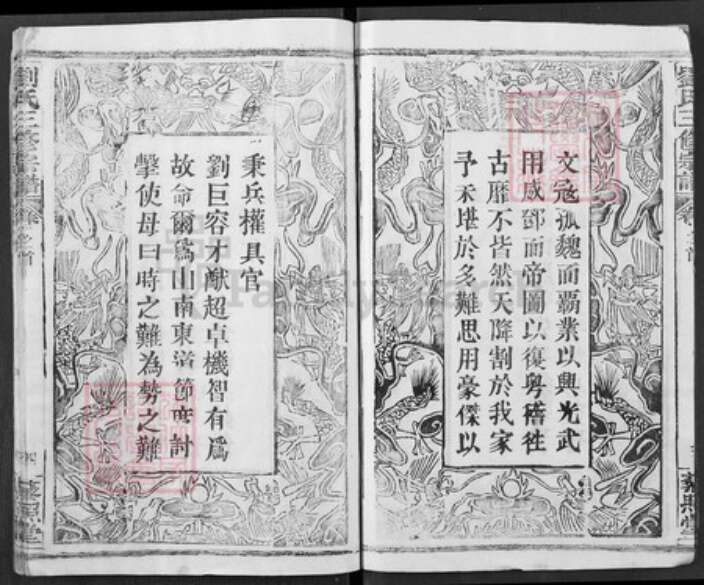 文冦孤魏而霸業以興光武
用咸鄧而帝圖以復粤稽往
古靡不皆然天降割於我家
予未堪於多難思用豪傑以
秉兵權具官
劉巨容才猷超卓機智有爲
故命爾爲山南東道節度討
擊使毋曰時之難為勢之難
劉氏三修宗譜
卷之首
藜照堂
劉氏三修宗譜
卷之首
藜照堂